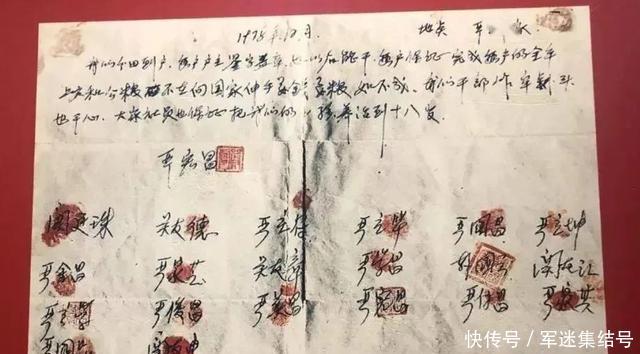 1978年12月 地点 严 家
我们分田到户，每户户主签字盖章，如以后能干，每户保证完成每户的全年
上交和公粮 不在向国家伸手要钱要粮，如不成，我们干部作牢刹头
也干心，大家社员也保证把我们的小孩养活到十八岁。
严宏昌
关廷珠 关友德 严立付 严立华 严国昌 严立坤
严金昌 严家芝 关友章 严学昌 韩国云 关友江
严立学 严俊昌 严美昌 严宏昌 严付昌 严家其
严国品 关友申
快传号 / 军迷集结号